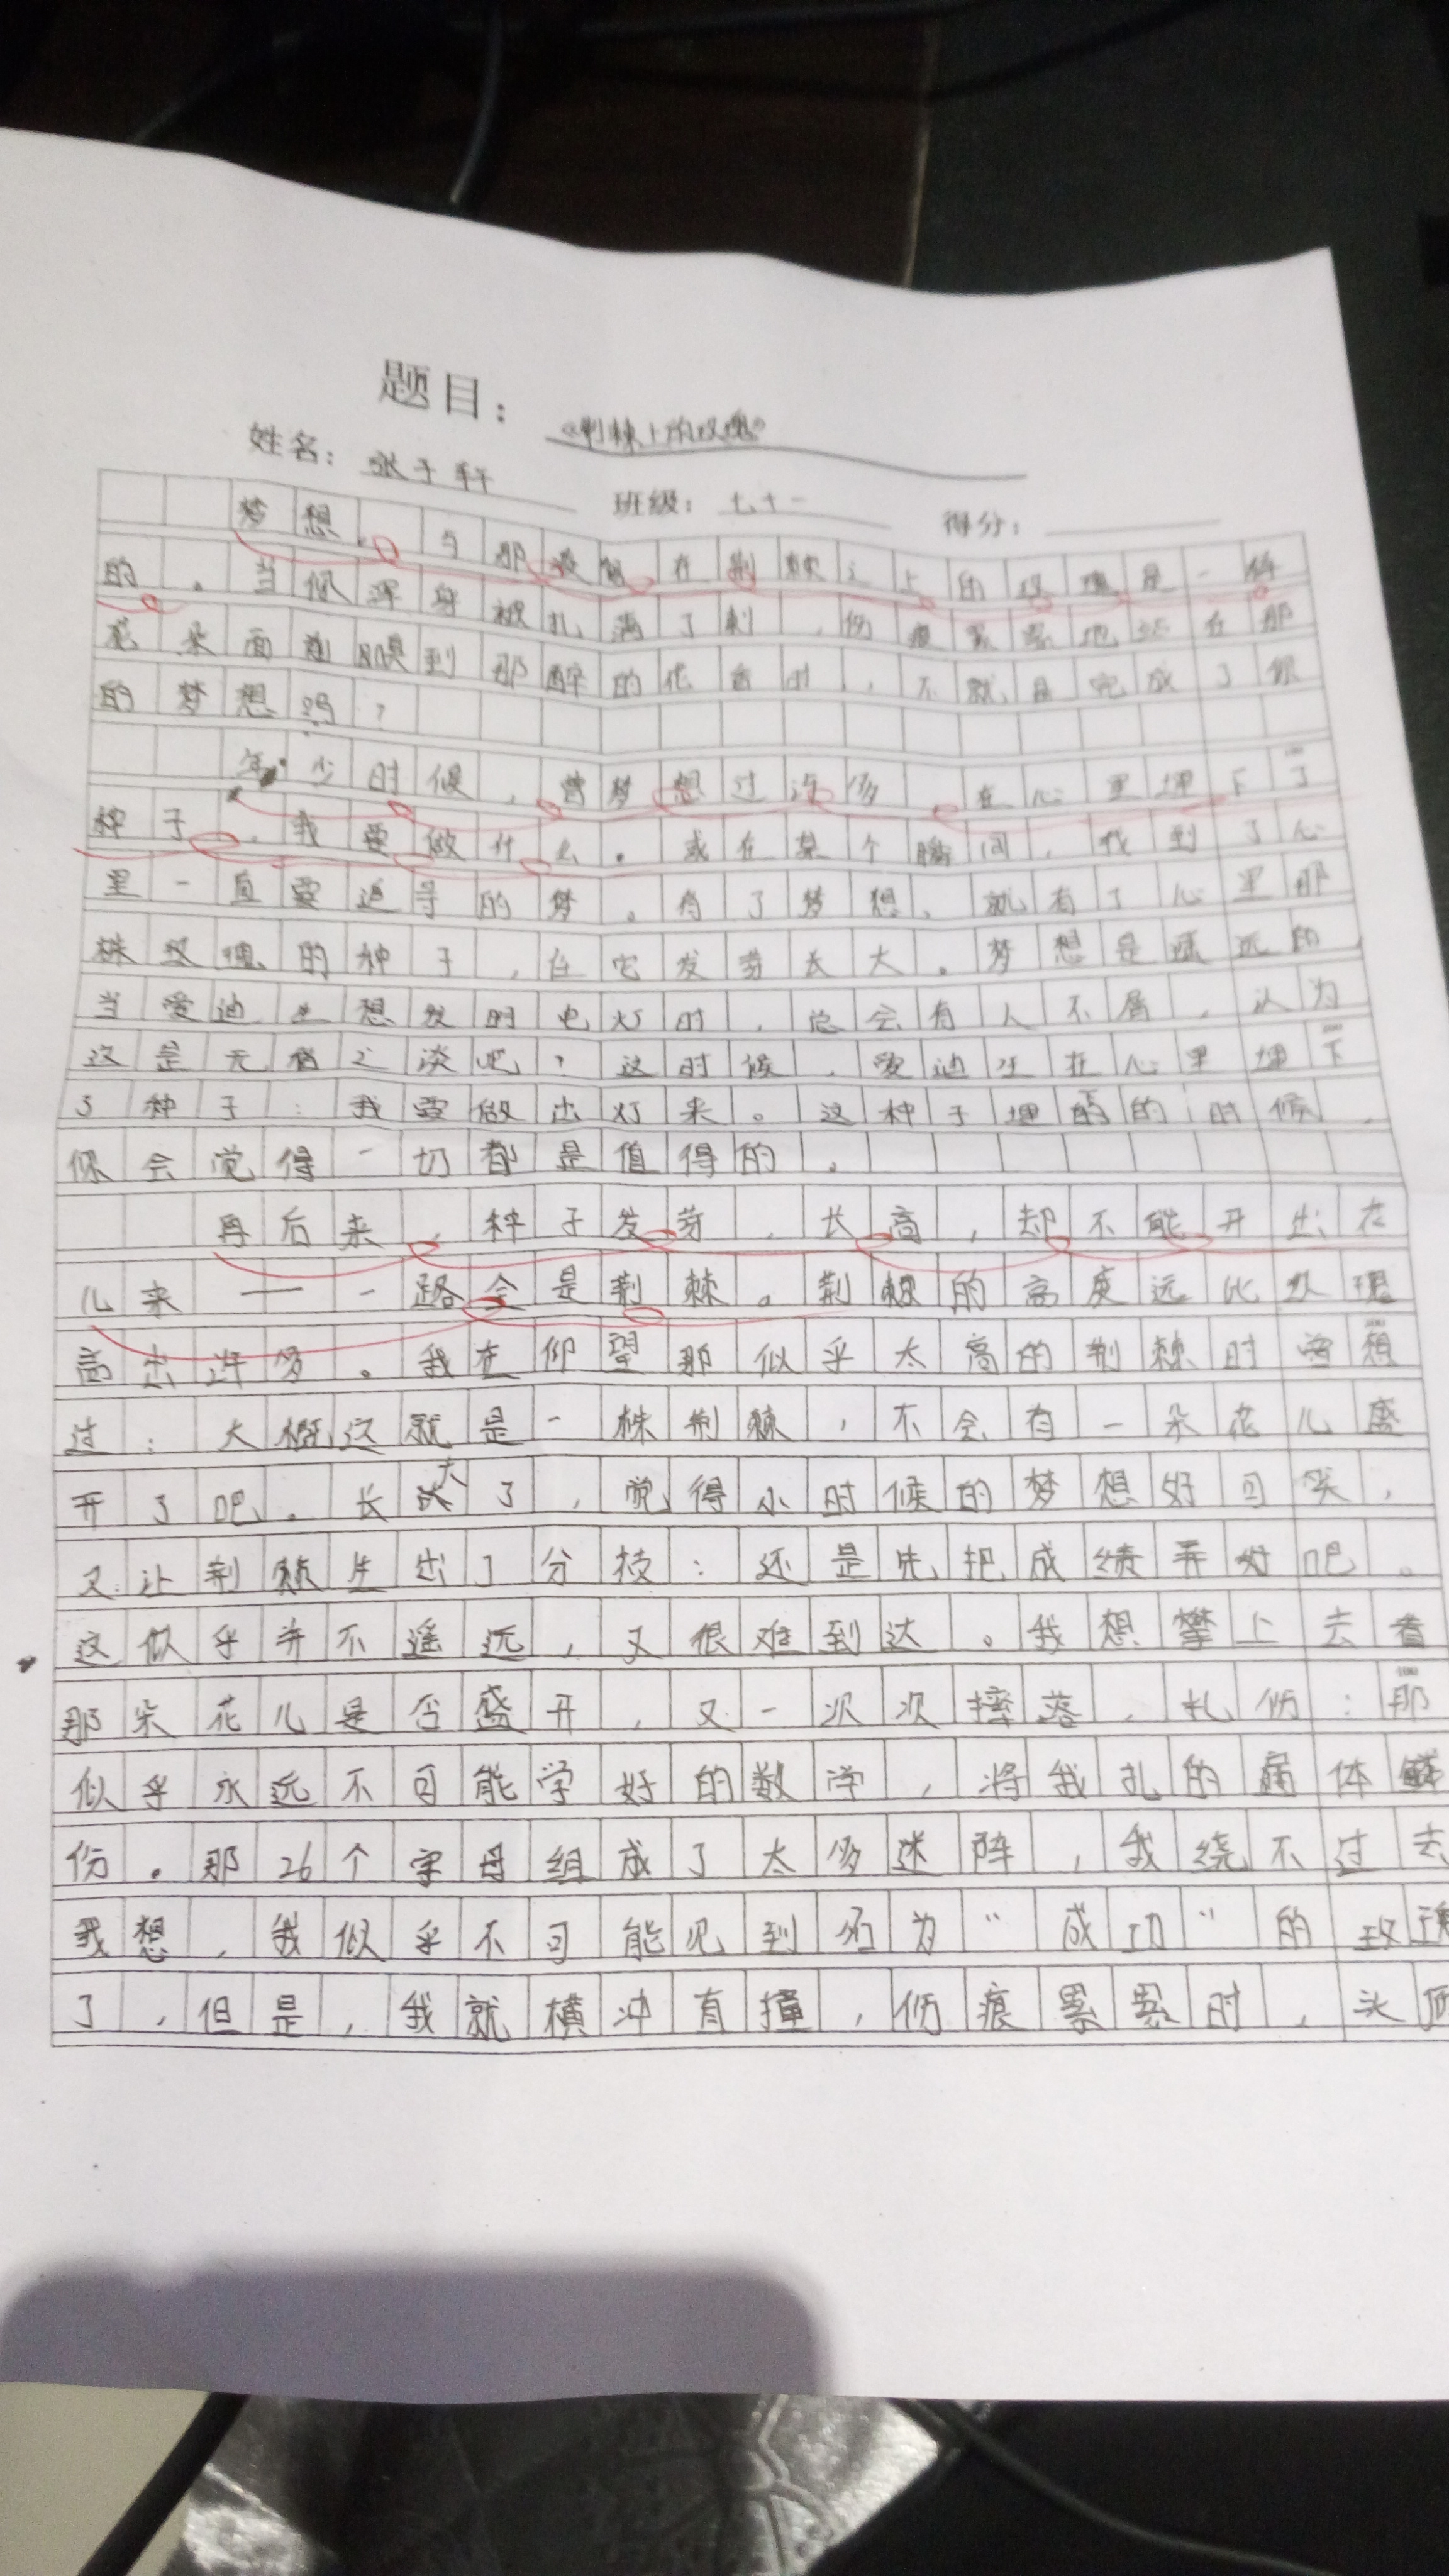 题目：《荆棘上的玫瑰》
姓名：张子轩 班级：七十一 得分：
梦想，与那在荆棘之上的玫瑰是一样
的。当你浑身被扎满了刺，伤痕累累地站在那
花朵面前嗅到那醉的花香时，不就且完成了你
的梦想吗？
年少时候，曾梦想过许多，在心里埋下了
种子，我要做什么。或在某个瞬间，找到了心
里一直要追寻的梦。有了梦想，就有了心里那
株玫瑰的种子，任它发芽长大。梦想是遥远的
当爱迪生想发明电灯时，总会有人不屑，认为
这是无稽之谈吧？这时候，爱迪生在心里埋下
了种子：我要做出灯来。这种子埋的时候，
你会觉得一切都是值得的。
再后来，种子发芽，长高，却不能开出花
儿来——一路全是荆棘。荆棘的高度远比玫瑰
高出许多。我在仰望那似乎太高的荆棘时曾想
过：大概这就是一株荆棘，不会有一朵花儿盛
开了吧。长大了，觉得小时候的梦想好可笑，
又让荆棘生出了分枝：还是先把成绩弄好吧。
这似乎并不遥远，又很难到达。我想攀上去看
那朵花儿是否盛开，又一次次摔落，扎伤：那
似乎永远不可能学好的数学，将我扎的遍体鳞
伤。那26个字母组成了太多迷阵，我绕不过去
我想，我似乎不可能见到名为“成功”的玫瑰
了，但是，我就横冲直撞，伤痕累累时，头顶